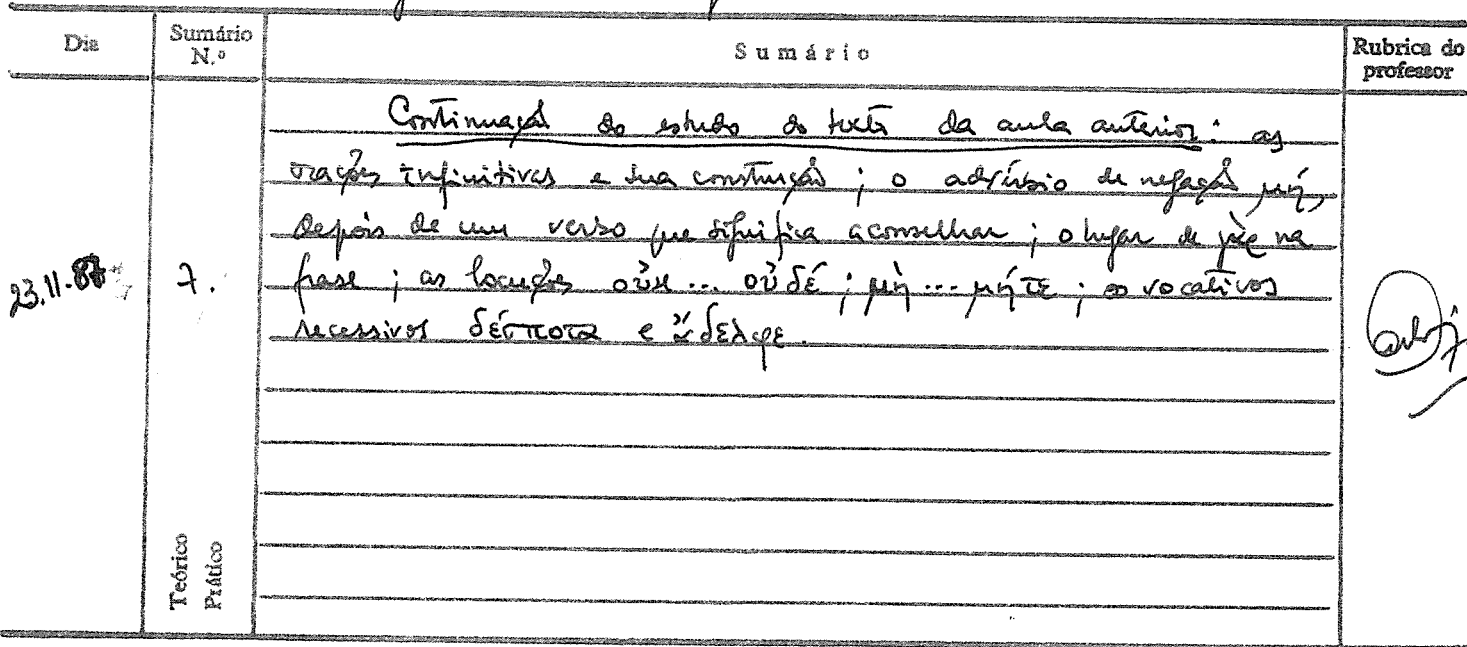 Dia
Sumário N.º
Sumário
Rubrica do professor
Continuação do estudo do texto da aula anterior: as
orações infinitivas e sua construção; o advérbio de negação μή,
depois de um verbo que significa aconselhar; o lugar de γάρ na
frase; as locuções οὐκ ... οὐδέ; μή ... μήτε; os vocativos
recessivos δέσποτα e ἄδελφε.
23.11.87
7.
Teórico
Prático